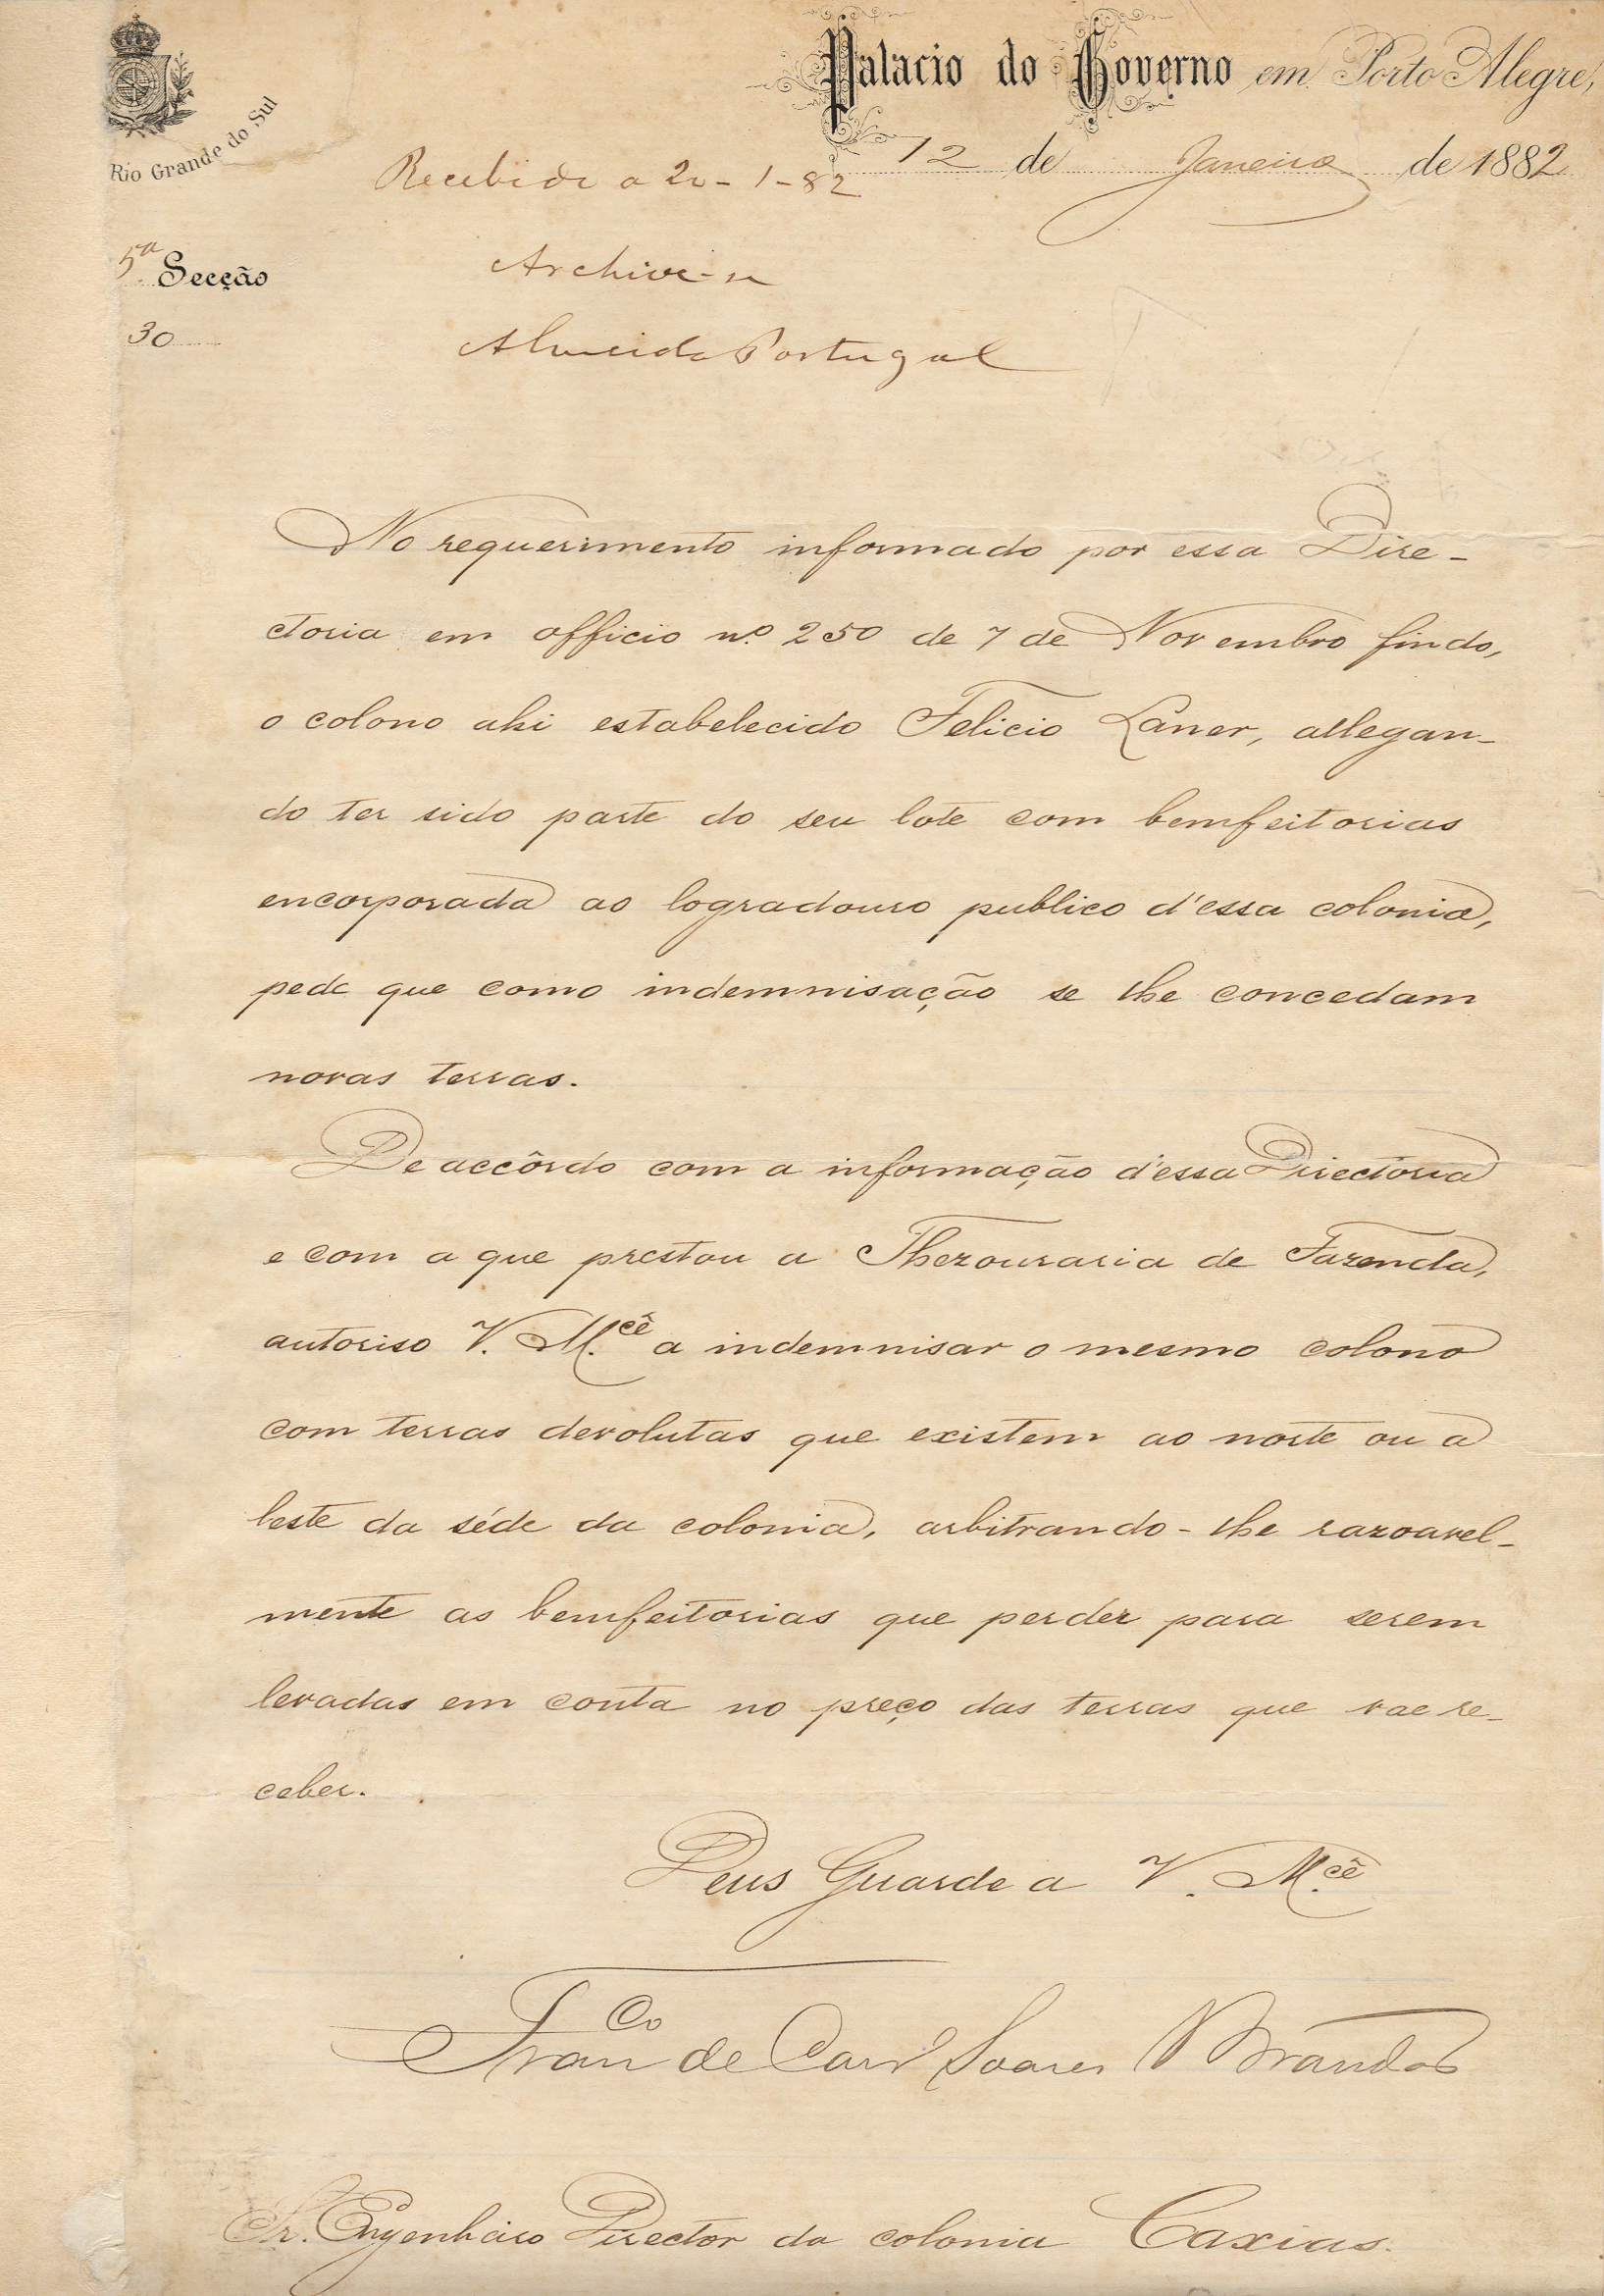 Palacio do Governo em Porto Alegre,
Rio Grande do Sul
12 de Janeiro de 1882
Recebido a 20-1-82
5ª Secção
Archive-se
30
Almeida Portugal
No requerimento informado por essa Dire-
ctoria em officio nº 250 de 7 de Novembro findo,
o colono ahi estabelecido Felicio Laner, allegan-
do ter sido parte do seu lote com bemfeitorias
encorporada ao logradouro publico d'essa colonia,
pede que como indemnisação se lhe concedam
novas terras.
De accôrdo com a informação d'essa Directoria
e com a que prestou a Thezouraria de Fazenda,
autoriso V. M.cê a indemnisar o mesmo colono
com terras devolutas que existem ao norte ou a
leste da séde da colonia, arbitrando-lhe razoavel-
mente as bemfeitorias que perder para serem
levadas em conta no preço das terras que vae re-
ceber.
Deus Guarde a V. M.cê
Franco de Carvº Soares Brandão
Sr. Engenheiro Director da colonia Caxias.